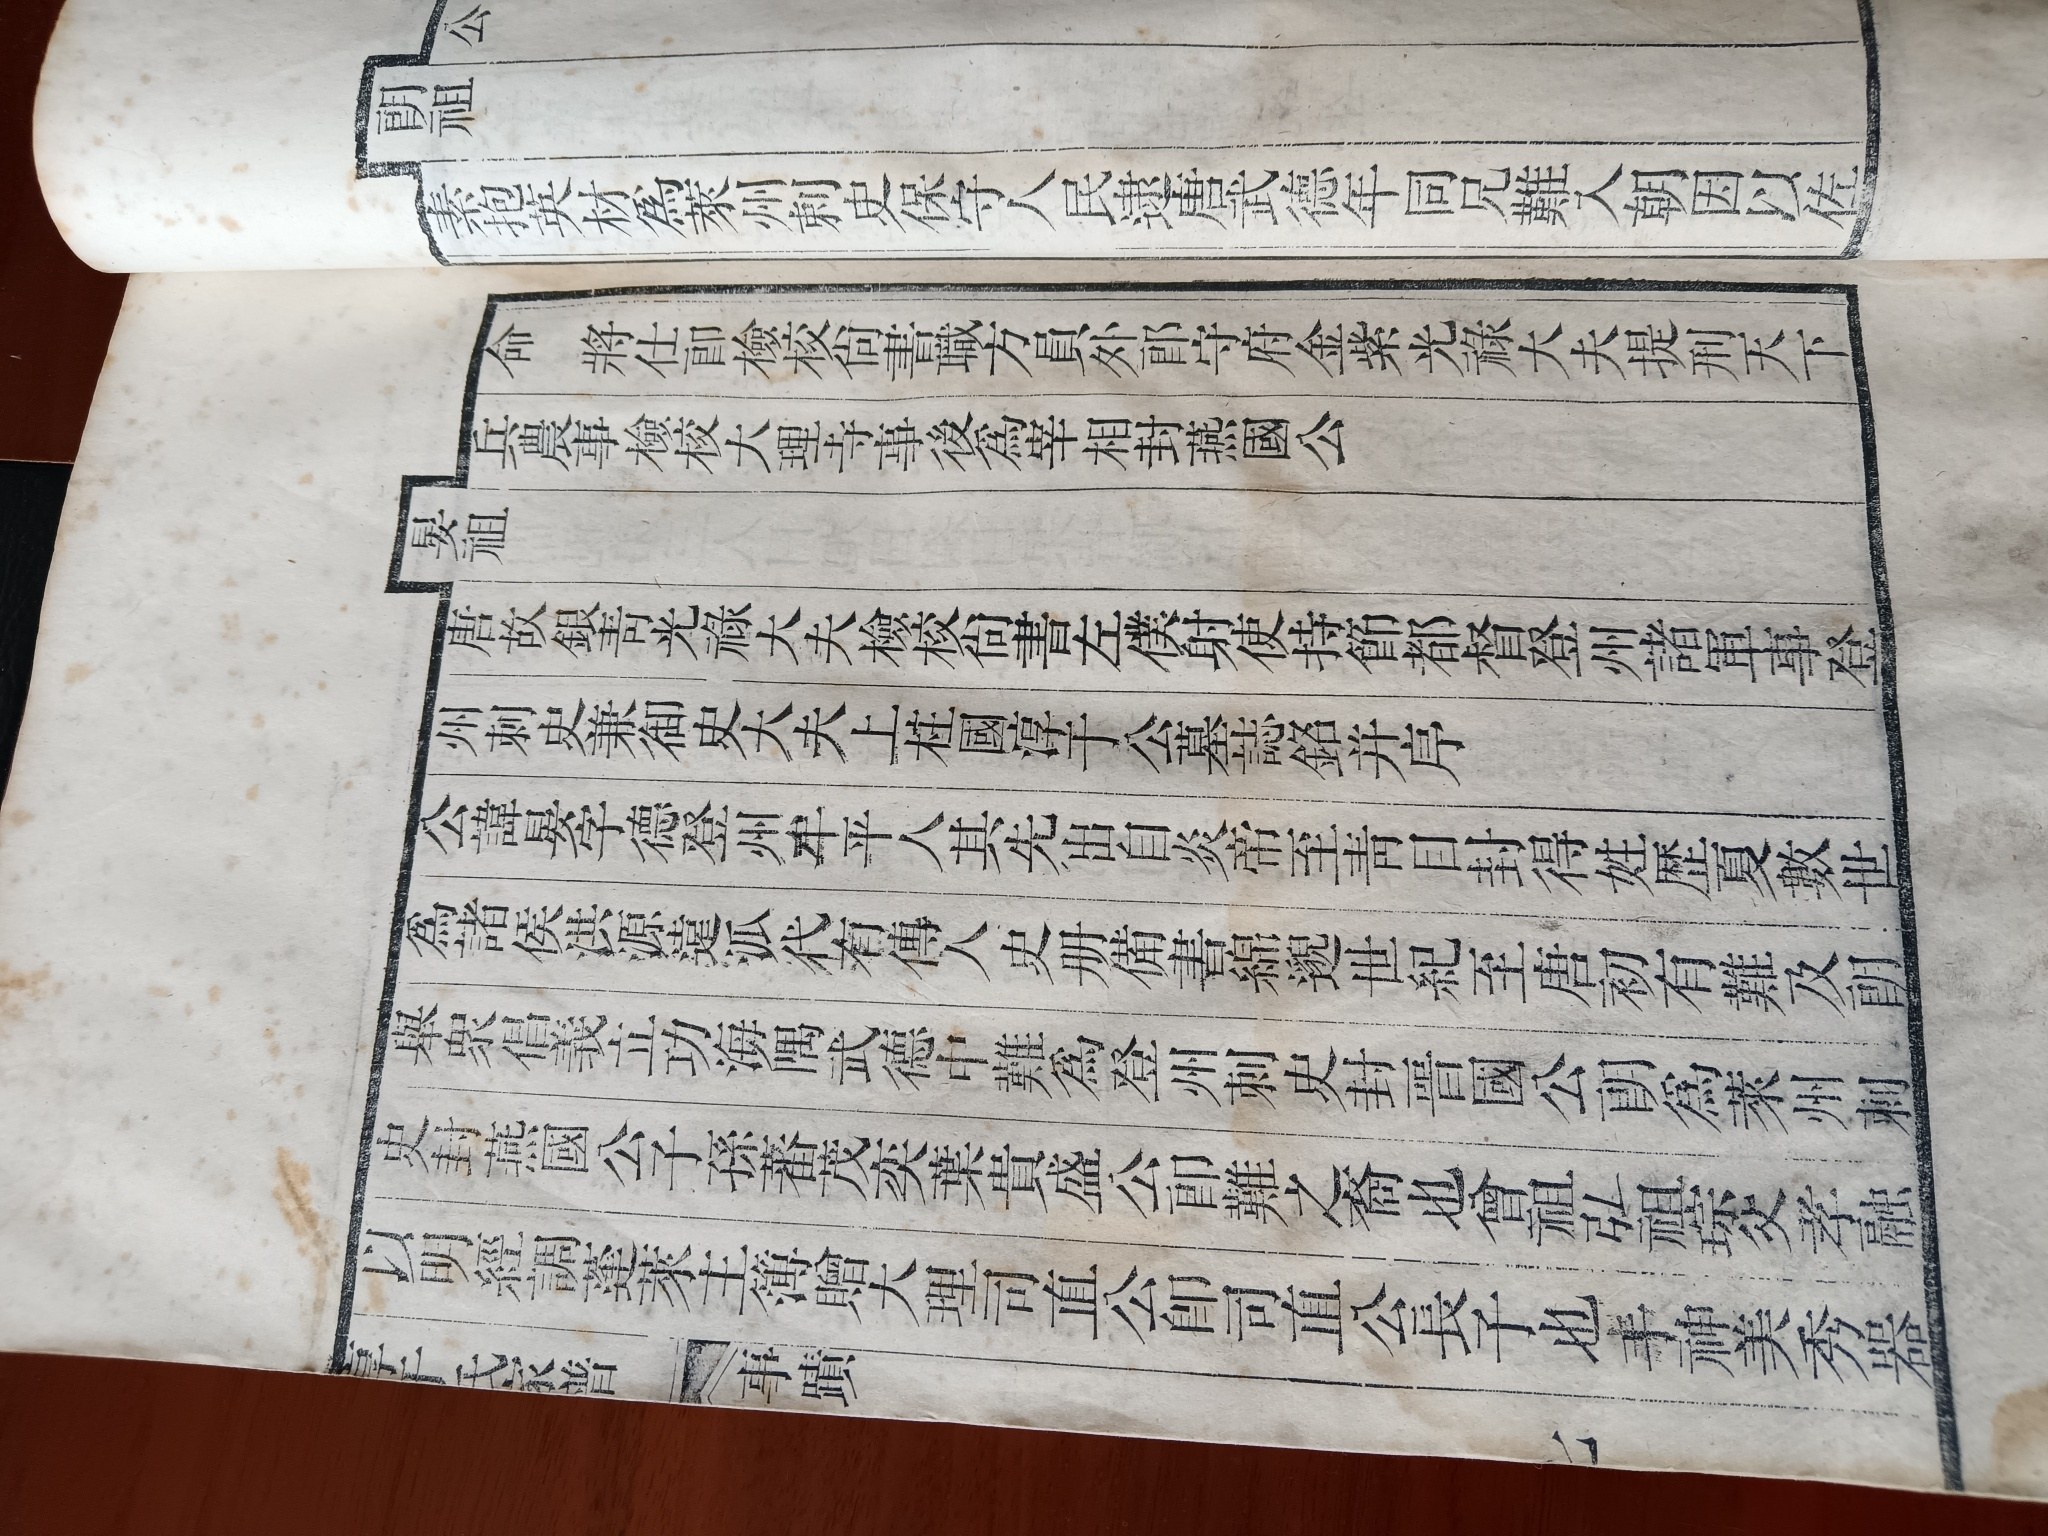 公
朗祖
素抱英材爲萊州刺史保守人民逮唐武德年同兄難入朝因以佐
命 將仕郎檢校尚書職方員外郎守府金紫光祿大夫提刑天下
兵農事檢校大理寺事後爲宰相封燕國公
晏祖
唐故銀青光祿大夫檢校尚書左僕射使持節都督登州諸軍事登
州刺史兼御史大夫上柱國淳于公墓誌銘并序
公諱晏字德登州牟平人其先出自炎帝至青目封得姓歷夏數世
爲諸侯洪源派代有傳人史册備書緜邈世紀至唐初有難及朗
舉眾倡義立功海隅武德中難爲登州刺史封晋國公朗爲萊州刺
史封燕國公子孫蕃茂奕葉貴盛公即難之裔也曾祖弘祖球父孝融
以明經調蓬萊主簿贈大理司直公即司直公長子也丰神美秀器
淳于氏宗譜 事蹟